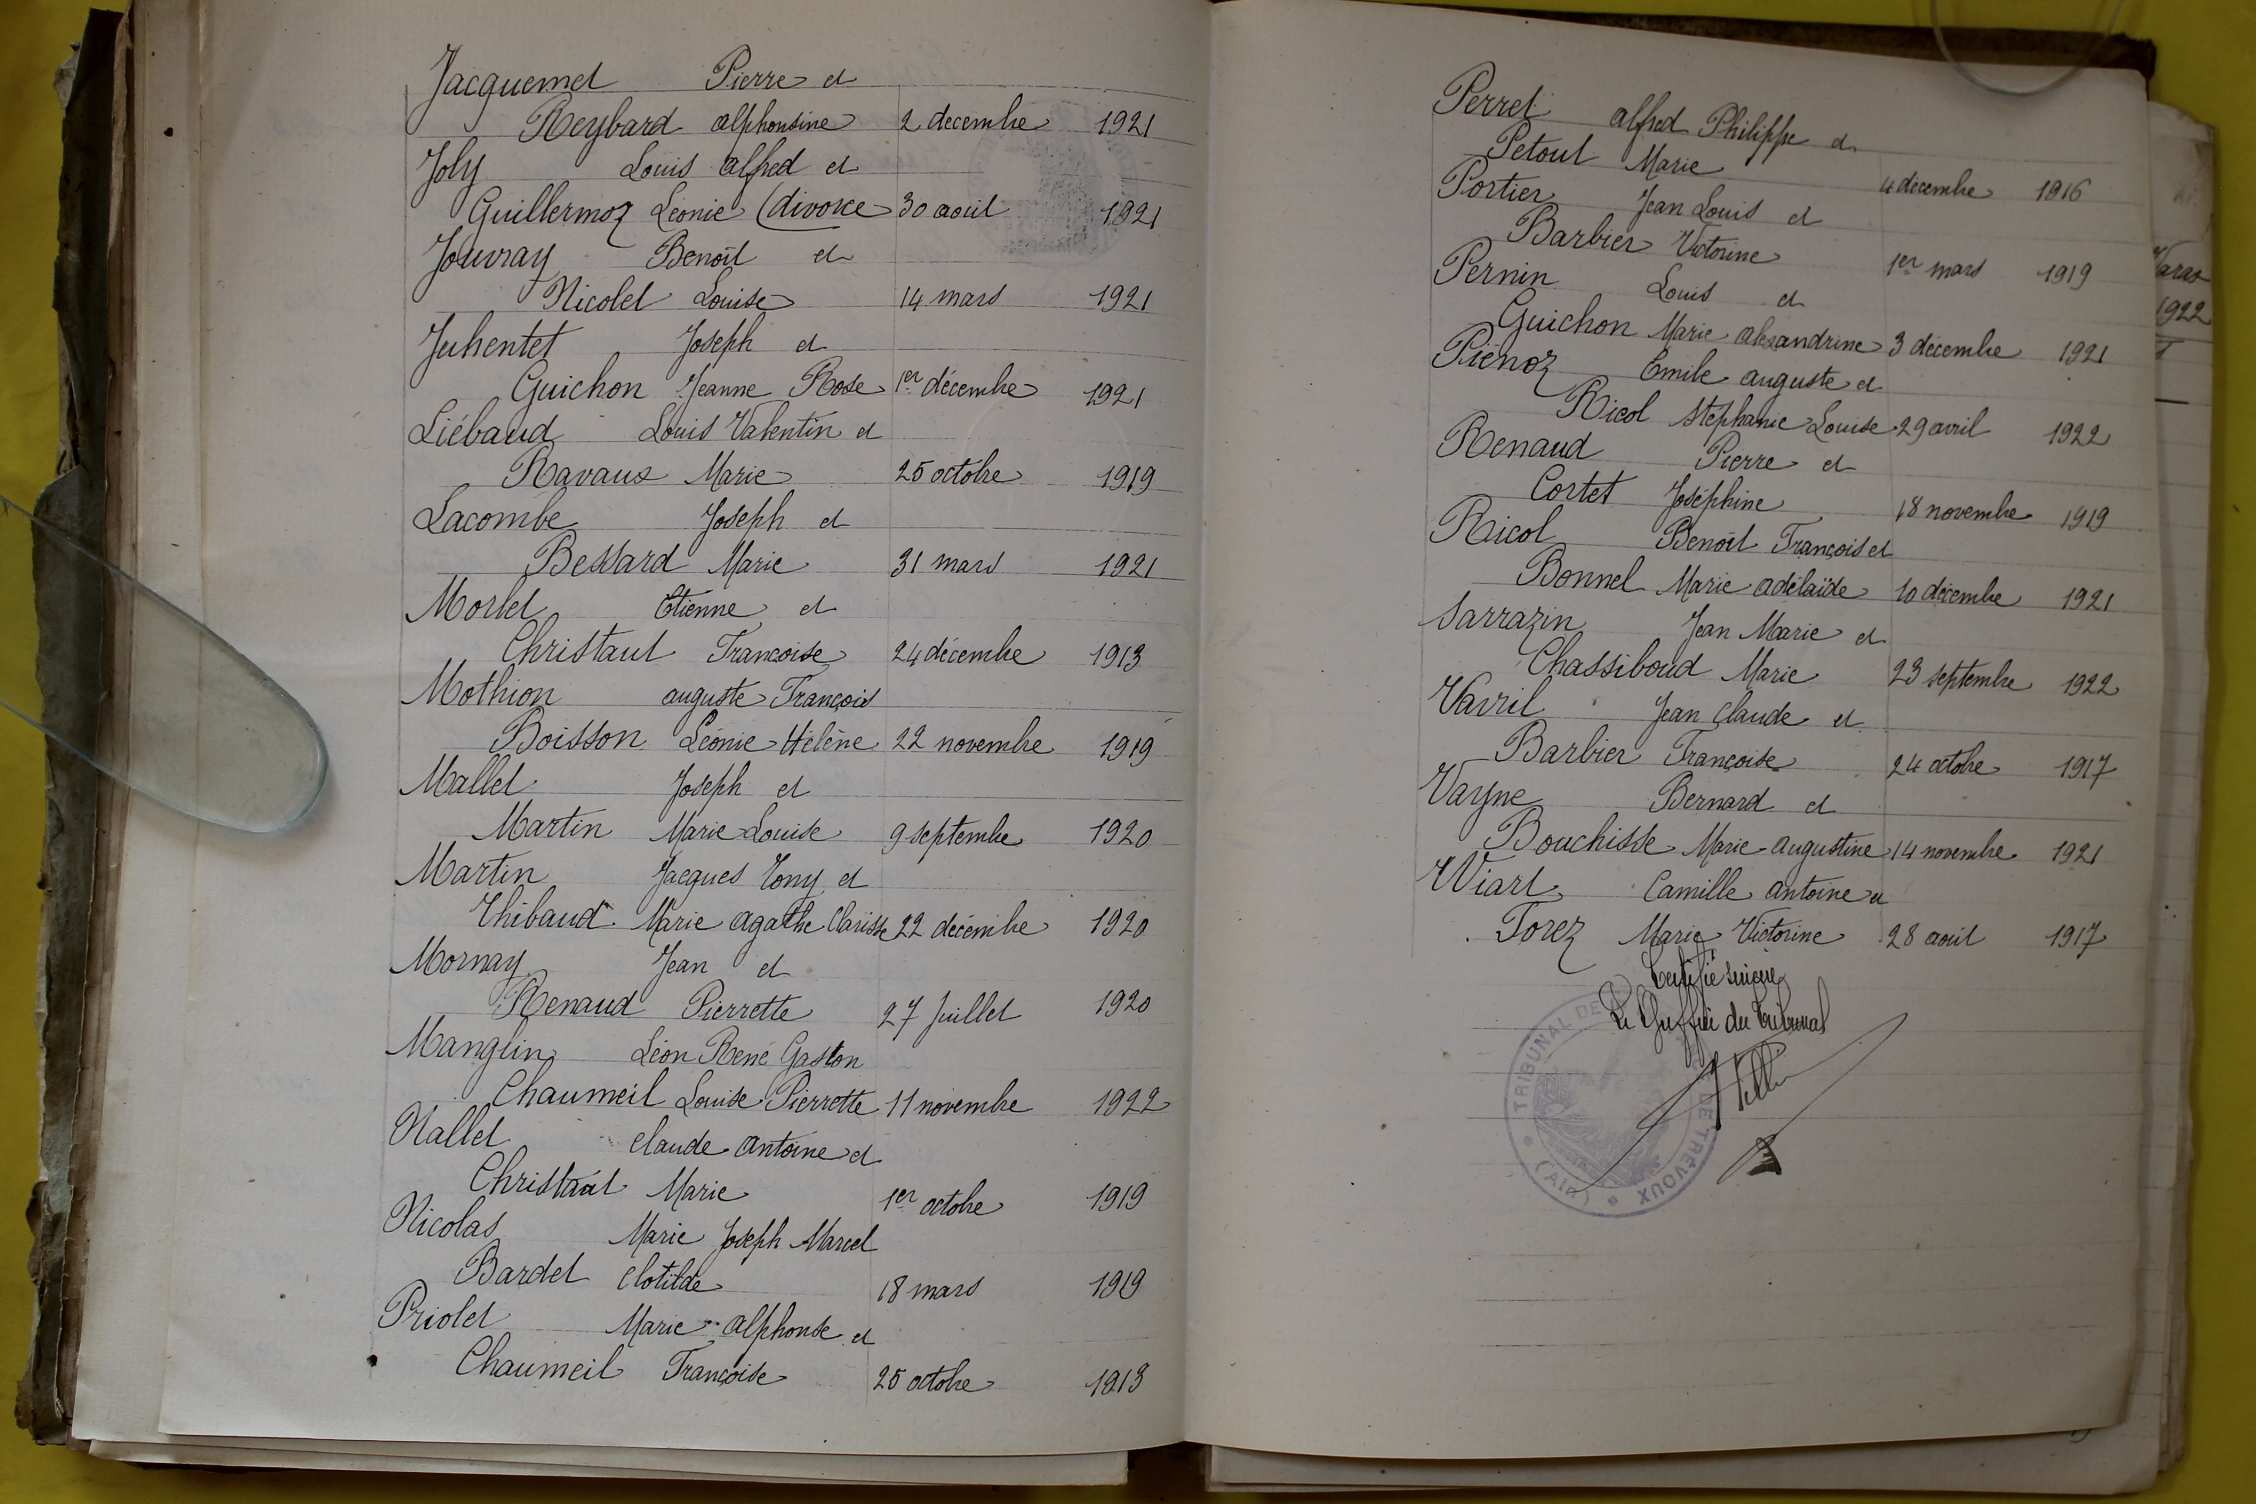 Jacquemet Pierre et
Reybard alphonsine 2 decembre 1921
Joly Louis alfred et
Guillermoz Léonie (divorce 30 aout 1921
Jouvray Benoît et
Nicolet Louise 14 mars 1921
Juhentet Joseph et
Guichon Jeanne Rose 1er décembre 1921
Liébaud Louis Valentin et
Ravaux Marie 25 octobre 1919
Lacombe Joseph et
Bessard Marie 31 mars 1921
Morlet Etienne et
Christaut Françoise 24 décembre 1913
Mothion auguste François
Boisson Léonie Hélène 22 novembre 1919
Mallet Joseph et
Martin Marie Louise 9 septembre 1920
Martin Jacques Tony et
Thibaud Marie agathe Clarisse 22 décembre 1920
Mornay Jean et
Renaud Pierrette 27 Juillet 1920
Manglin Léon René Gaston
Chaumeil Louise Pierrette 11 novembre 1922
Nallet claude antoine et
Christaut Marie 1er octobre 1919
Nicolas Marie Joseph Marcel
Bardet Clotilde 18 mars 1919
Priolet Marie alphonse et
Chaumeil Françoise 25 octobre 1913
Perret alfred Philippe et
Petout Marie 4 décembre 1916
Portier Jean Louis et
Barbier Victorine 1er mars 1919
Pernin Louis et
Guichon Marie alexandrine 3 décembre 1921
Piénoz Emile auguste et
Ricol stéphanie Louise 29 avril 1922
Renaud Pierre et
Cortet Joséphine 18 novembre 1919
Ricol Benoît François et
Bonnet Marie adélaïde 10 décembre 1921
Sarrazin Jean Marie et
Chassiboud Marie 23 septembre 1922
Vavril Jean Claude et
Barbier Françoise 24 octobre 1917
Vayne Bernard et
Bouchisse Marie augustine 14 novembre 1921
Wiart Camille antoine et
Forez Marie Victorine 28 aout 1917
Certifié sincère
Le Greffier du Tribunal
TRIBUNAL DE DE TRÉVOUX
(AIN)
1922